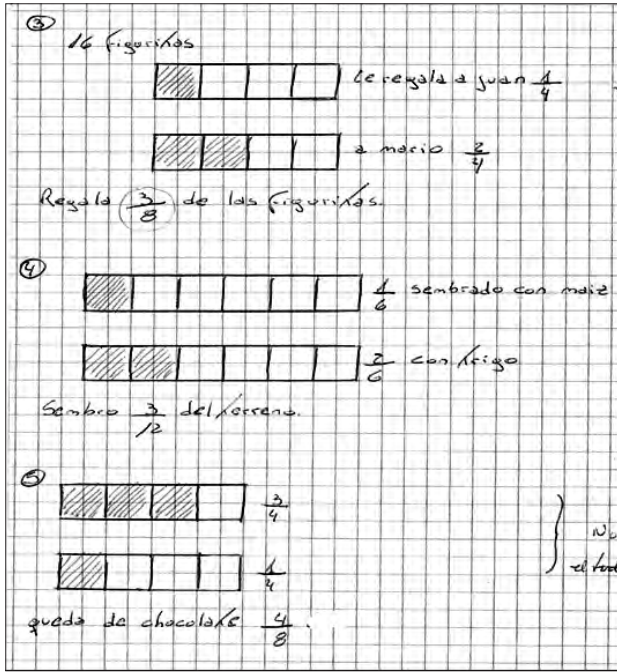 ③
16 figuritas
le regala a juan 1/4
a mario 2/4
Regala 3/8 de las figuritas.
④
1/6 sembrado con maiz
2/6 con trigo
Sembro 3/12 del terreno.
⑤
3/4
1/4
No
el tod
queda de chocolate 4/8.